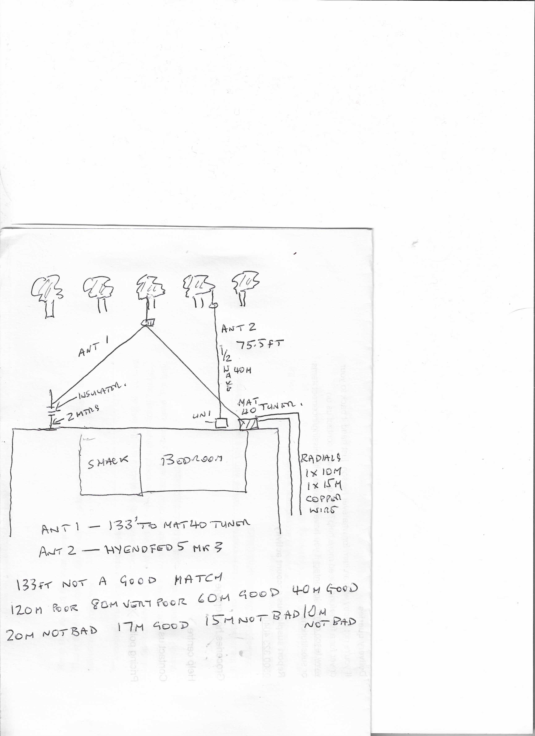 ANT 1
ANT 2
75.5 FT
1/2
WAVE
40M
INSULATOR.
2 MTRS
UNI
MAT
40 TUNER.
SHACK
BEDROOM
RADIALS
1 X 10M
1 X 15M
COPPER
WIRE
ANT 1 — 133' TO MAT 40 TUNER
ANT 2 — HYENDFED 5 MK 3
133FT NOT A GOOD MATCH
120M POOR 80M VERY POOR 60M GOOD 40M GOOD
20M NOT BAD 17M GOOD 15M NOT BAD 10M
NOT BAD